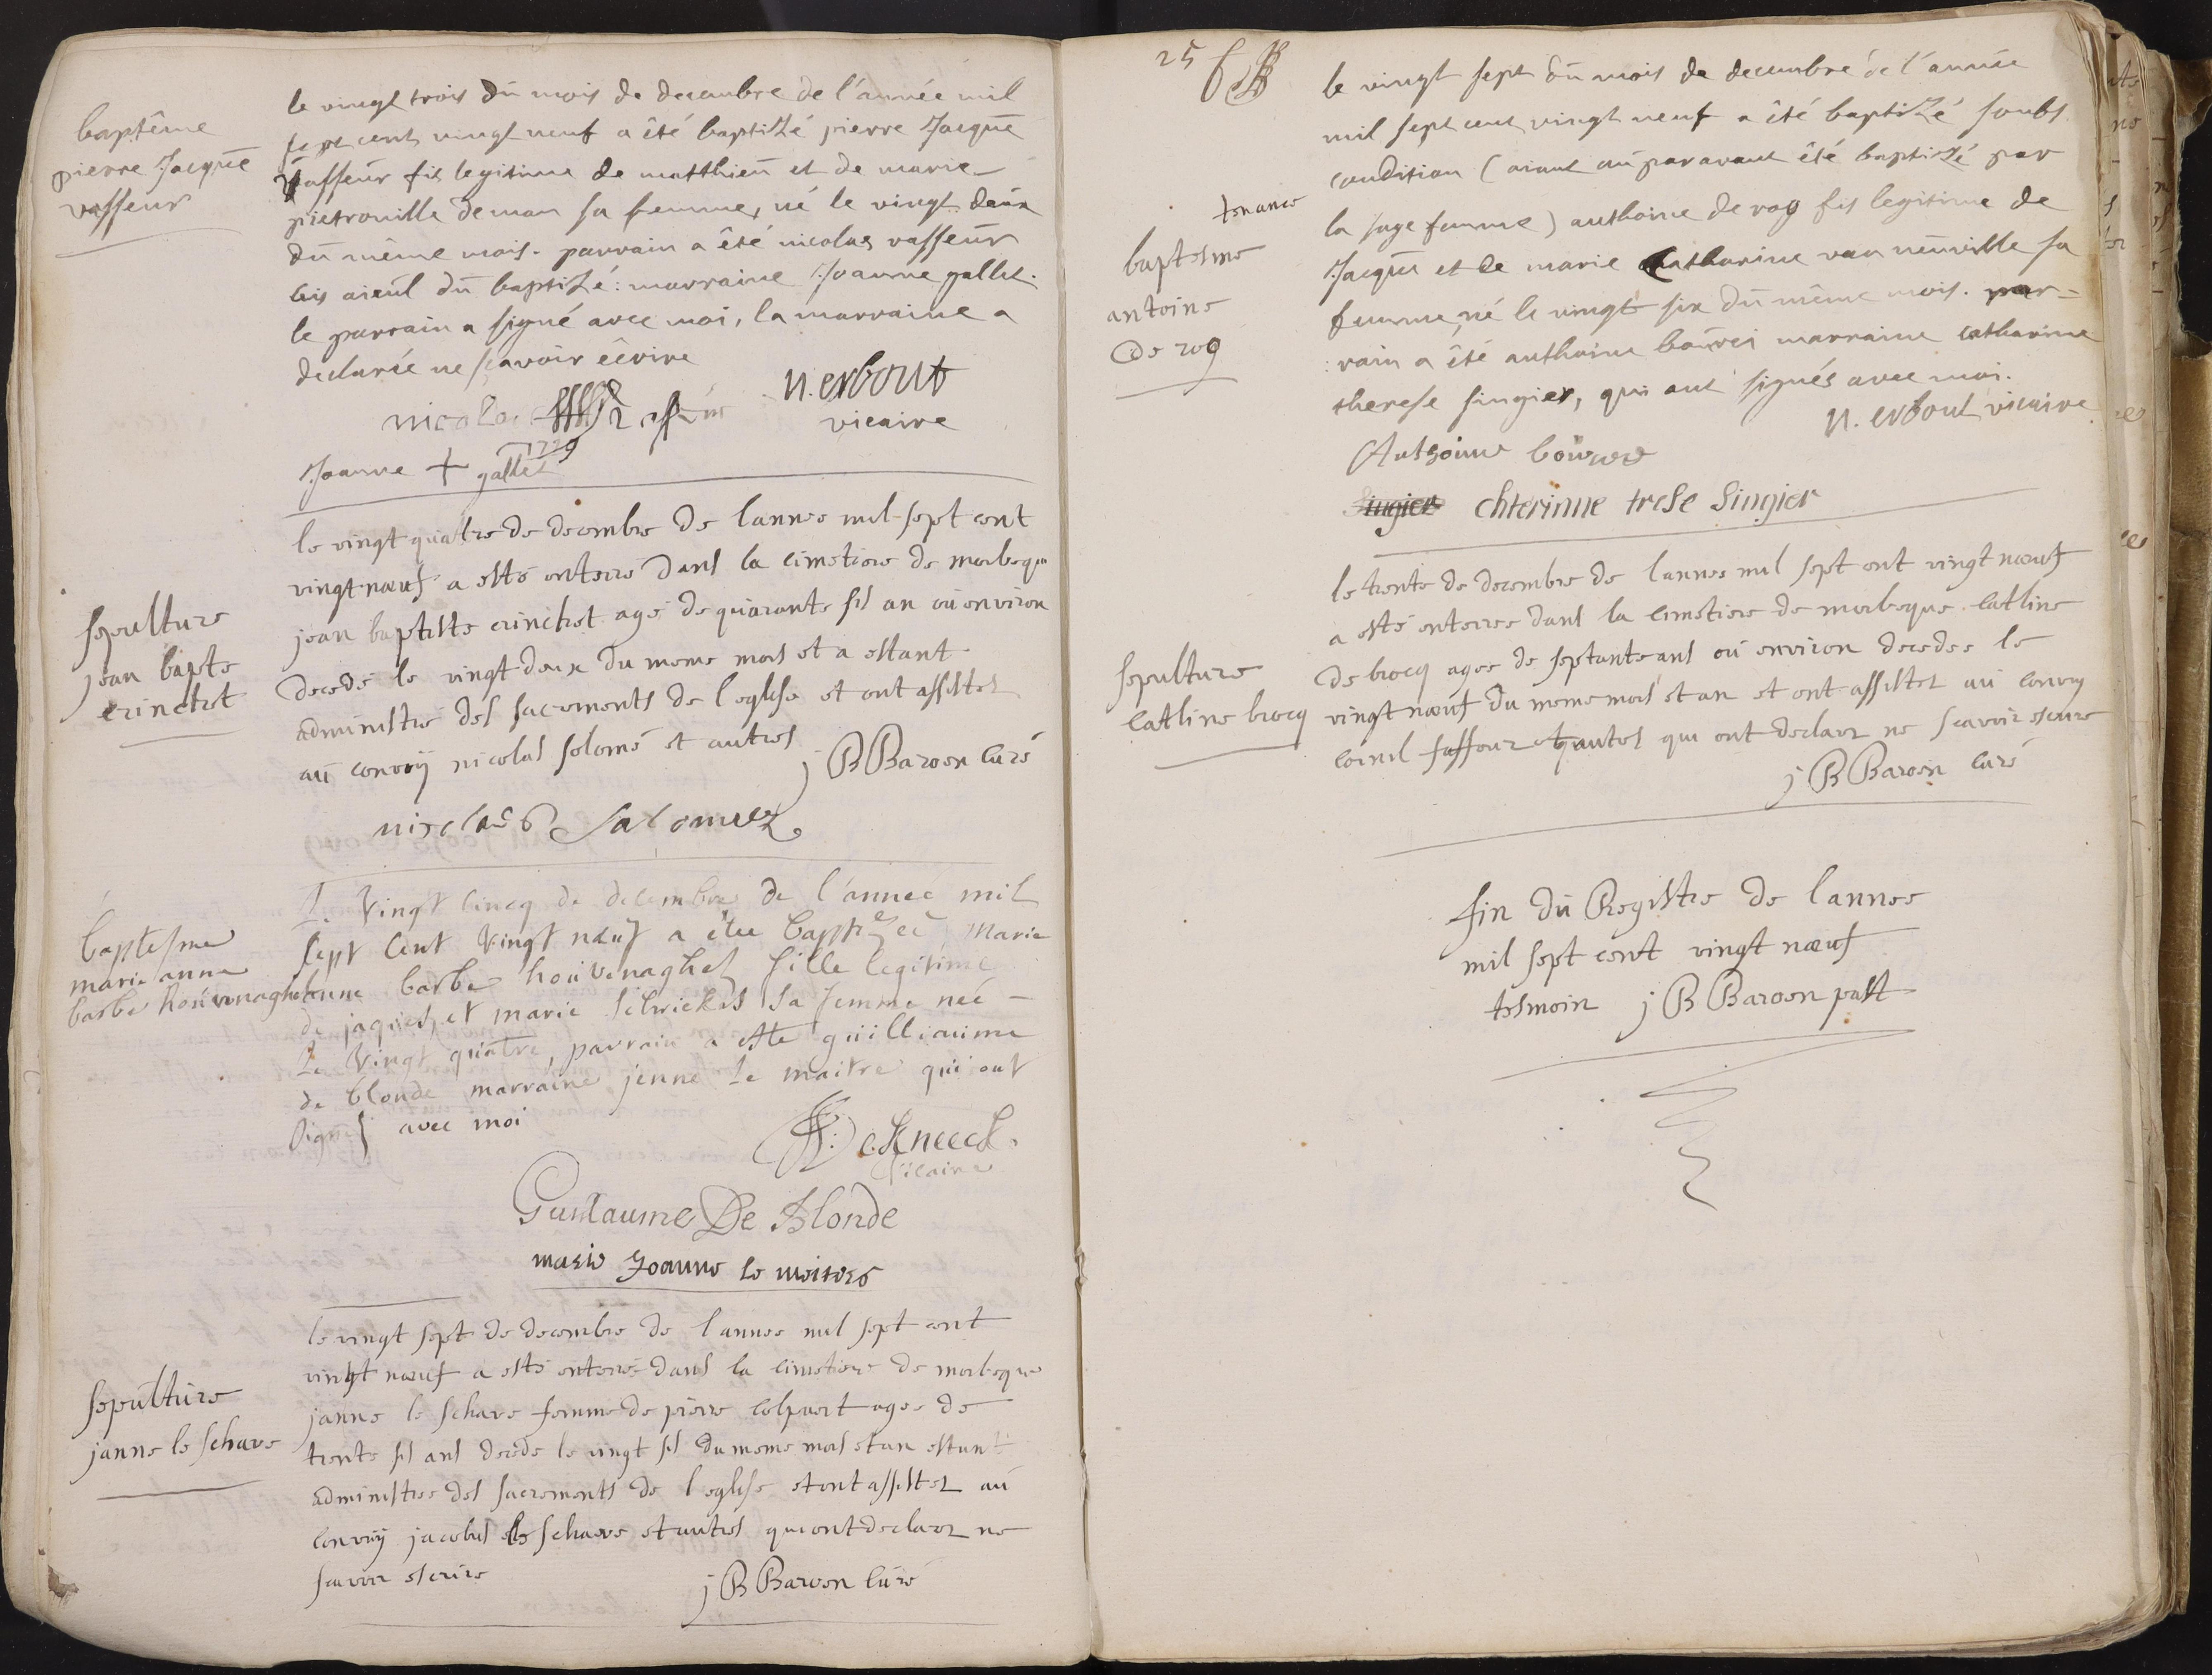 baptême
pierre Jacque
vasseur
le vingt trois du mois de decembre de l'année mil
sept cent vingt neuf a été baptizé pierre Jacque
vasseur fis legitime de matthieu et de marie
pietronille deman sa femme, né le vingt deux
du même mois. parrain a été nicolas vasseur
bis aieul du baptizé: marraine Joanne gallet.
le parrain a signé avec moi, la marraine a
declarée ne sçavoir écrire
nicola
n. erbout
vicaire
Joanne + gallet
1729
sepulture
jean bapte
crinchet
le vingt quatre de decembre de lannee mil sept cent
vingt nœuf a esté enterré dans la cimetiere de morbeque
jean baptiste crinchet agé de quarante sis an oú environ
decedé le vingt deux du meme mois et a estant
administré des sacrements de l'eglise et ont assistez
aú convoÿ nicolas solomé et autres
j B Baroen curé
nisclas Salomez
baptesme
marie anne
barbe hoúvenaghel
Le Vingt cincq de decembre de l'anneé mil
sept cent Vingt nœuf a étée baptizeé Marie
anne barbe hoúvenaghel fille legitime
de jaques et marie schrickes sa femme neé
Le Vingt quatre, parrain a este guilliaume
de blonde marraine jenne Le maitre qui ont
signés avec moi
vicaire
Guillaume De Blonde
marie Joanne le meitres
sepulture
janne le schave
le vingt sept de decembre de lannee mil sept cent
vinht nœuf a esté enterré dans la cimetiere de morbeque
janne le schave femme de pierre colpaert agee de
trente sis ans decede le vingt sis du meme mois et an estant
administree des sacrements de l'eglise et ont assistez aú
convoÿ jacobus le schave et autres qui ont declarez ne
scavoir escrire
j B Baroen curé
25
le vingt sept du mois de decembre de l'année
mil sept cent vingt neuf a été baptizé soubs
condition (aiant auparavant été baptizé par
la sage femme) anthoine de rog fis legitime de
Jacque et de marie Catharine van neuville sa
femme, né le vingt six du même mois. par-
:rain a été anthoine bourei marraine catharine
therese singier, qui ont signés avec moi.
n. erbout vicaire
baptesme
antoine
de rog
Anthoinne
Singier chterinne trese Singier
sepulture
catline brocq
le trente de decembre de lannee mil sept cent vingt nœuf
a esté enterree dans la cimetiere de morbeque catline
de brocq agee de septante ans oú environ decedee le
vingt nœuf du meme mois et an et ont assistez aú convoy
cornil et autres qui ont declarez ne scavoir escrire
j B Baroen curé
fin dú Registre de lannee
mil sept cent vingt nœuf
tesmoin j B Baroen past